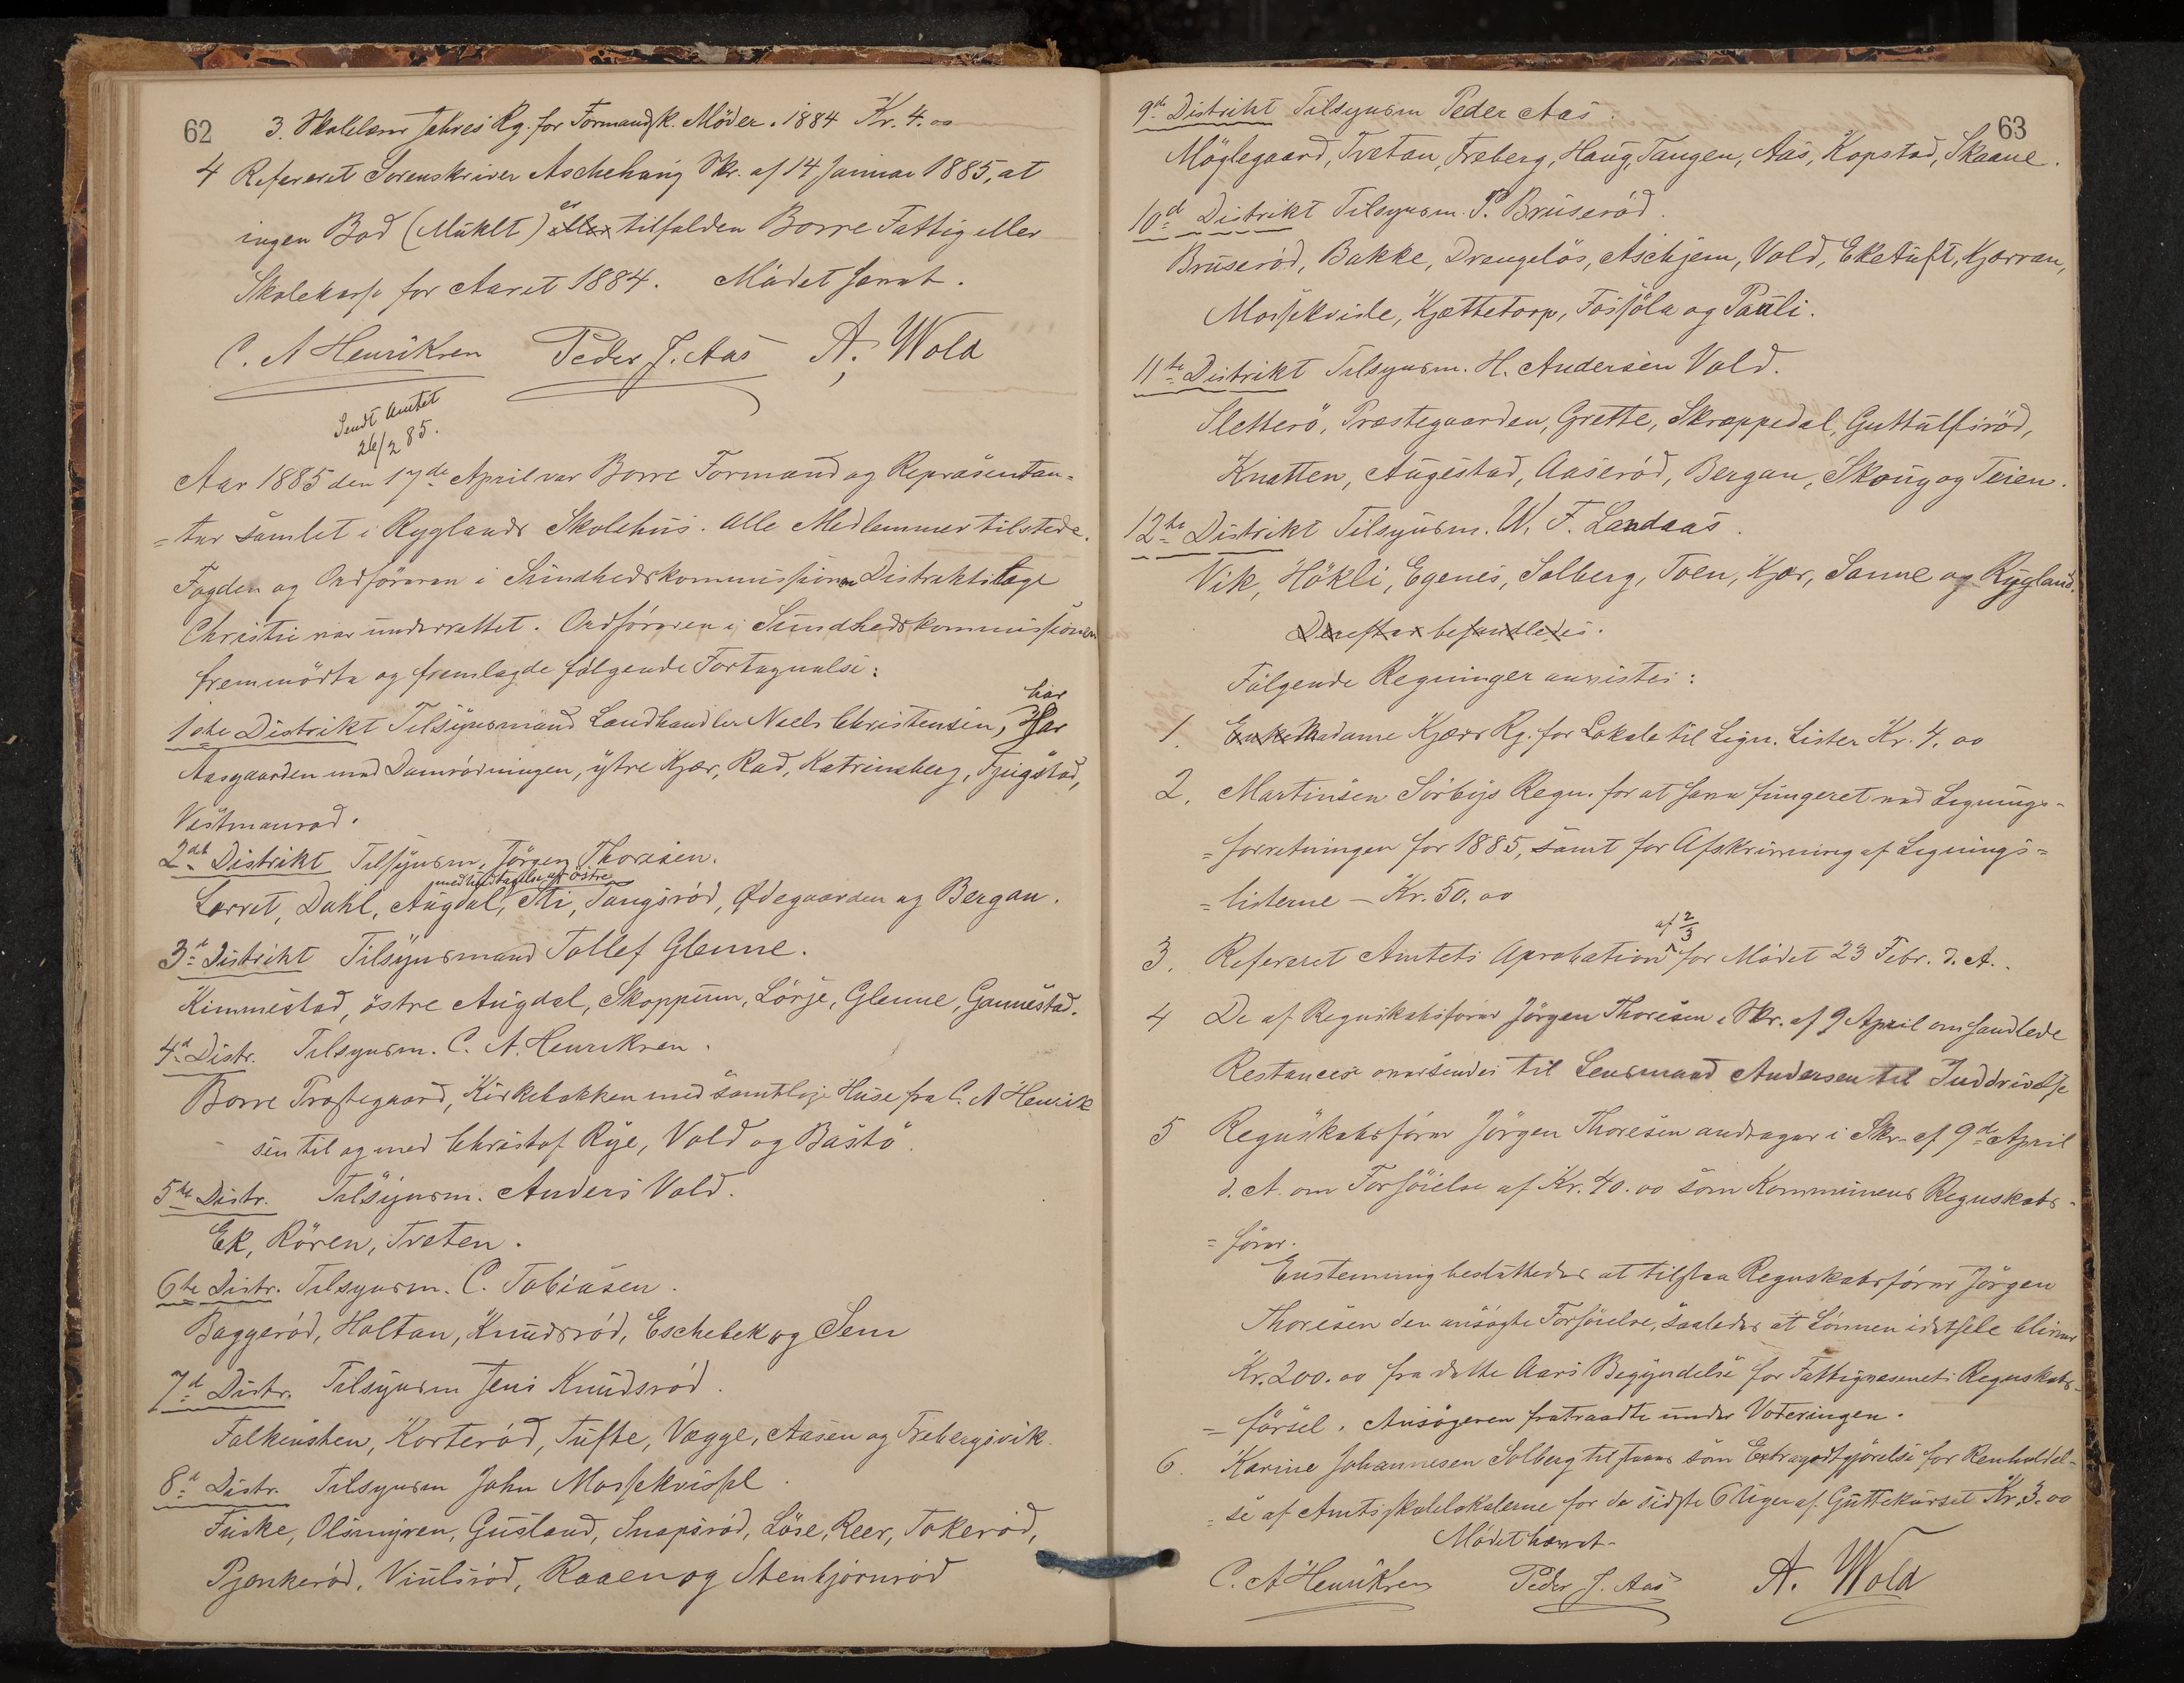 62
3. Skolelærer Jahres Rg. for Formandsk. Möder. 1884 Kr. 4.00
4 Refereret Sorenskriver Aschehaug Skr. af 14 Januar 1885, at
ingen Bod (Mulkt) er eller tilfalden Borre Fattig eller
Skolekasse for Aaret 1884. Mödet hævet.
C. A Henriksen Peder J. Aas A. Wold
Sendt Amtet
26/2 85.
Aar 1885 den 17de April var Borre Formand og Repræsentan=
=ter samlet i Ryglands Skolehus. Alle Medlemmer tilstede.
Fogden og Ordföreren i Sundhedskommissionen Distriktslæge
Christie var underrettet. Ordföreren i Sundhedskommissionen
fremmödte og fremlagde fölgende Fortegnelse:
1ste Distrikt Tilsynsmand Landhandler Neels Christensen, har
Aasgaarden med Damrödningen, ytre Kjær, Rad, Katrineberg, Fjugstad,
Vestmanrød.
2det Distrikt Tilsynsm, Jörgen Thoresen.
med undtagelse af östre
Lorvet, Dahl, Augdal, Sti, Tangsröd, Ødegaarden og Bergan.
3d Distrikt Tilsynsmand Tollef Glenne.
Kimmestad, östre Augdal, Skoppum, Lörje, Glenne, Gannestad.
4d Distr. Tilsynsm. C. A. Henriksen.
Borre Præstegaard, Kirkebakken med samtlige Huse fra C. A Henrik
sen til og med Christof Rye, Vold og Bastö.
5te Distr. Tilsynsm. Anders Vold.
Ek, Rören, Tveten.
6te Distr. Tilsynsm. C. Tobiasen.
Baggeröd, Holtan, Knudsröd, Eschebek og Sem
7d Distr. Tilsynsm Jens Knudsröd.
Falkensten, Korteröd, Tufte, Vegge, Aasen og Trebergsvik.
8d Distr. Tilsynsm John
Fuske, Olsmyren, Gusland, Snapsröd, Löse, Reer, Tokeröd,
Pjonkeröd, Viulsröd, Raaen og Stenbjörnröd
63
9d Distrikt Tilsynsm Peder Aas.
Möglegaard, Tvetan, Freberg, Haug, Tangen, Aas, Kopstad, Skaane.
10d Distrikt Tilsynsm. P. Bruseröd.
Bruseröd, Bakke, Drengelös, Aschjem, Vold, Eketuft, Kjærran,
Kjættetorp, Fossöla og Pauli.
11te Distrikt Tilsynsm. H. Andersen Vold.
Sletterö, Præstegaarden, Grette, Skræppedal, Guttulfsröd,
Knatten, Augestad, Aaseröd, Bergan, Skoug og Teien.
12te Distrikt Tilsynsm. W. F. Landaas.
Vik, Hökli, Egenes, Solberg, Toen, Kjær, Sanne og Rygland.
Derefter behandledes.
Fölgende Regninger anvistes:
1. Enke Madame Kjærs Rg. for Lokale til Lign. Lister Kr. 4.00
2. Martinsen Sörbys Regn. for at have fungeret ved Lignings-
=forretningen for 1885, samt for Afskrivning af Lignings=
=listerne – Kr. 50.00
af 2/3
3. Refereret Amtets Aprobation for Mödet 23 Febr. d. A.
4 De af Regnskabsförer Jörgen Thoresen i Skr. af 9 April omhandlede
Restancer oversendes til Lensmand Andersen til Inddrivelse
5 Regnskabsförer Jörgen Thoresen andrager i Skr. af 9de April
d. A. om Forhöielse af Kr. 40.00 som Kommunens Regnskabs-
=förer.
Enstemmig besluttedes at tilstaa Regnskabsförer Jörgen
Thoresen den ansögte Forhöielse, saaledes at Lönnen idethele bliver
Kr. 200.00 fra dette Aars Begyndelse for Fattigvæsenets Regnskabs-
=försel. Ansögeren fratraadte under Voteringen.
6. Karine Johannesen Solberg tilstaaes som Extragodtgjörelse for Renholdel-
=se af Amtsskolelokalerne for de sidste 6 Uger af Guttekurset Kr. 3.00
Mödet hævet.
C. A Henriksen Peder J. Aas A. Wold